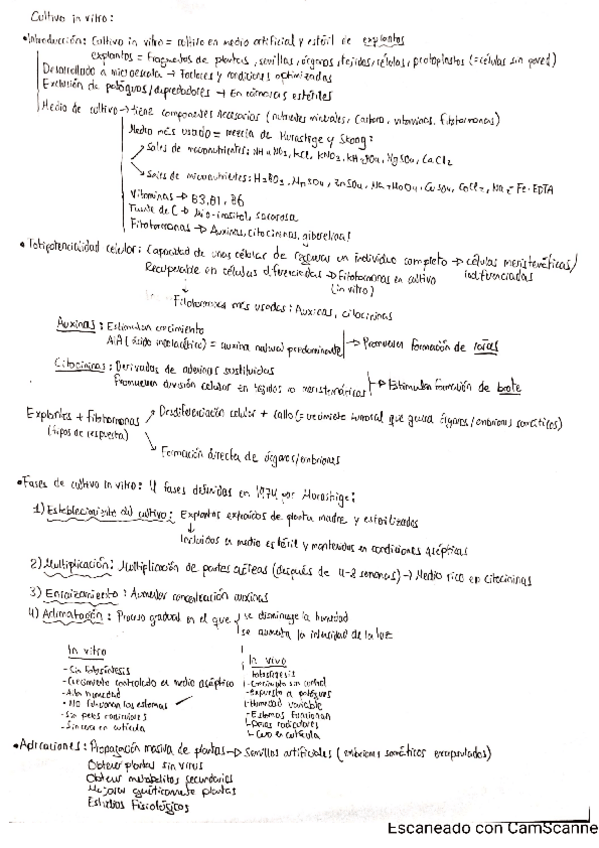 Cultivo in vitro:
• Introducción: Cultivo in vitro = cultivo en medio artificial y estéril de explantos
explantos = fragmentos de plantas, semillas, órganos, tejidos, células, protoplastos (= células sin pared)
Desarrollado a microescala → Factores y condiciones optimizadas
Exclusión de patógenos/depredadores → En cámaras estériles
Medio de cultivo → tiene componentes necesarios (nutrientes minerales, carbono, vitaminas, fitohormonas)
Medio más usado = mezcla de Murashige y Skoog:
Sales de macronutrientes: NH4NO3, KCl, KNO3, KH2PO4, MgSO4, CaCl2
Sales de micronutrientes: H3BO3, MnSO4, ZnSO4, Na2MoO4, CuSO4, CoCl2, Na2-Fe-EDTA
Vitaminas → B3, B1, B6
Fuente de C → Mio-inositol, sacarosa
Fitohormonas → Auxinas, citocininas, giberelinas
• Totipotencialidad celular: Capacidad de unas células de regenerar un individuo completo → células meristemáticas/
indiferenciadas
Recuperable en células diferenciadas → Fitohormonas en cultivo
(in vitro)
Fitohormonas más usadas: Auxinas, citocininas
Auxinas: Estimulan crecimiento
AIA (ácido indolacético) = auxina natural predominante → Promueven formación de raíces
Citocininas: Derivadas de adeninas sustituidas
Promueven división celular en tejidos no meristemáticos → Estimulan formación de brote
Explantes + Fitohormonas → Desdiferenciación celular + callo (= crecimiento tumoral que genera órganos/embriones somáticos)
(tipos de respuesta)
Formación directa de órganos/embriones
• Fases de cultivo in vitro: 4 fases definidas en 1974 por Murashige:
1) Establecimiento del cultivo: Explantos extraídos de planta madre y esterilizados
Incluidos en medio estéril y mantenidos en condiciones asépticas
2) Multiplicación: Multiplicación de partes aéreas (después de 4-8 semanas) → Medio rico en citocininas
3) Enraizamiento: Aumentar concentración auxinas
4) Aclimatación: Proceso gradual en el que se disminuye la humedad
se aumenta la intensidad de la luz
In vitro
- Sin fotosíntesis
- Crecimiento controlado en medio aséptico
- Alta humedad
- NO funcionan los estomas
- Sin pelos radiculares
- Sin cera en cutícula
In vivo
- Fotosíntesis
- Crecimiento sin control
- Expuesto a patógenos
- Humedad variable
- Estomas funcionan
- Pelos radiculares
- Cera en cutícula
• Aplicaciones: Propagación masiva de plantas → Semillas artificiales (embriones somáticos encapsulados)
Obtener plantas sin virus
Obtener metabolitos secundarios
Mejorar genéticamente plantas
Estudios fisiológicos
Escaneado con CamScanne